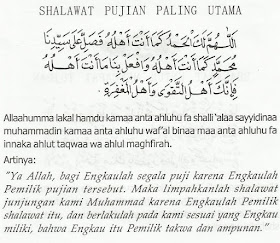 SHALAWAT PUJIAN PALING UTAMA
اَللّٰهُمَّ لَكَ الْحَمْدُ كَمَا أَنْتَ أَهْلُهُ فَصَلِّ عَلَى سَيِّدِنَا
مُحَمَّدٍ كَمَا أَنْتَ أَهْلُهُ وَافْعَلْ بِنَا مَا أَنْتَ أَهْلُهُ
فَإِنَّكَ أَهْلُ التَّقْوَى وَأَهْلُ الْمَغْفِرَةِ.
Allaahumma lakal hamdu kamaa anta ahluhu fa shalli 'alaa sayyidinaa
muhammadin kamaa anta ahluhu waf'al binaa maa anta ahluhu fa
innaka ahlut taqwaa wa ahlul maghfirah.
Artinya:
"Ya Allah, bagi Engkaulah segala puji karena Engkaulah
Pemilik pujian tersebut. Maka limpahkanlah shalawat
junjungan kami Muhammad karena Engkaulah Pemilik
shalawat itu, dan berlakulah pada kami sesuai yang Engkau
miliki, bahwa Engkau itu Pemilik takwa dan ampunan."